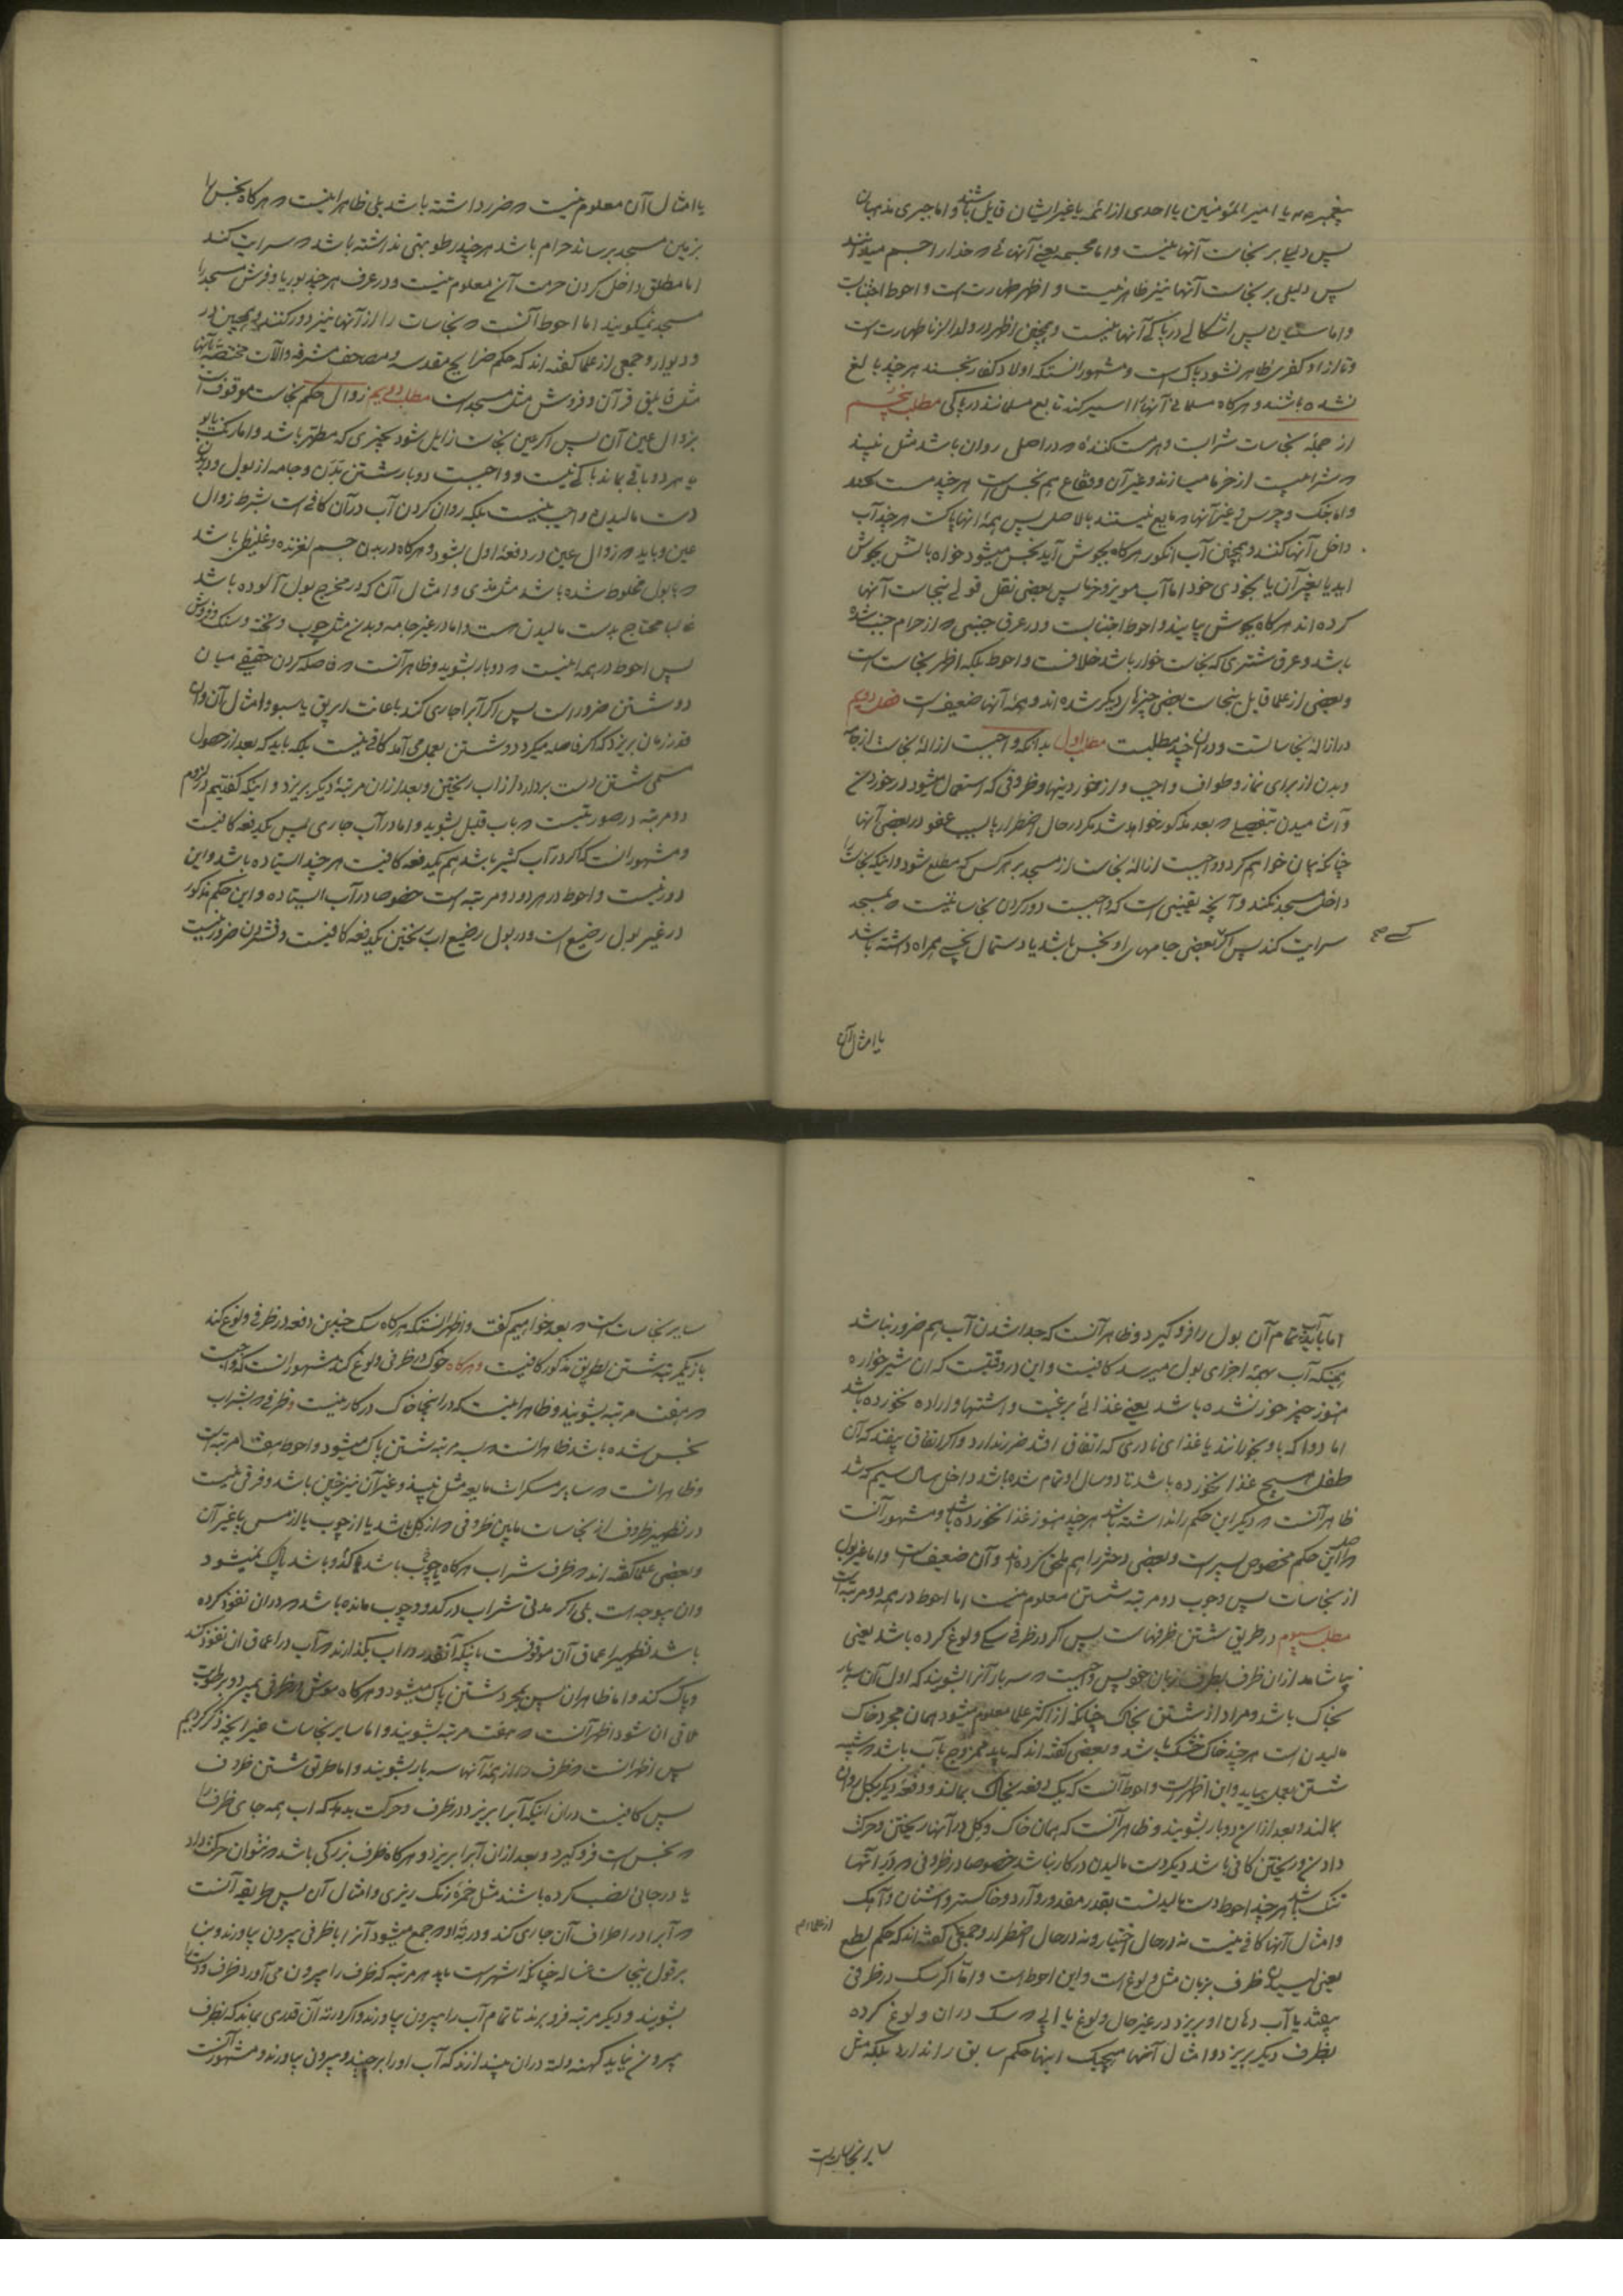 پیغمبر یا امیر المؤمنین یا احدی از ائمه یا غیر ایشان قایل باشند و اما جبری مذهبان
پس دلیلی بر نجاست آنها نیست و اما مجسمه یعنی آنهائی که خدا را جسم میدانند
پس دلیلی بر نجاست آنها نیز ظاهر نیست و اظهر طهارت است و احوط اجتناب
و اما سنیان پس اشکالی در پاکی آنها نیست و همچنین اظهر در ولد الزنا طهارت است
و تا از او کفری ظاهر نشود پاک است و مشهور انستکه اولاد کفار نجسند هر چند بالغ
نشده باشند و هر کاه مسلمانی آنها را اسیر کند تابع مسلمانند در پاکی مطلب پنجم
از جمله نجاسات شرابست و هر مست کننده که در اصل روان باشد مثل نبیذ
که شرابیست از خرما میسازند و غیر آن و فقاع هم نجس است هر چند مست نکند
و اما بنک و چرس و غیر آنها که مایع نیستند بالاصل پس همه انها پاکست هر چند آب
داخل آنها کنند و همچنین آب انکور هر کاه بجوش آید نجس میشود خواه باتش بجوش
اید یا بغیر آن یا بخودی خود اما آب مویز و خرما پس بعضی نقل قولی بنجاست آنها
کرده اند هر کاه بجوش بیایند و احوط اجتنابست و در عرق جنبی که از حرام جنب شده
باشد و عرق شتری که نجاست خوار باشد خلافست و احوط بلکه اظهر نجاست است
و بعضی از علما قایل بنجاست بعضی چیزهای دیکر شده اند و همه آنها ضعیف است فصل دویم
در ازاله نجاساتست و در ان چند مطلبست مطلب اول بدانکه واجبست ازاله نجاست از جامه
و بدن از برای نماز و طواف واجب و از خوردنیها و ظروفی که استعمال میشود در خوردن
و آشامیدن بتفصیلی که بعد مذکور خواهد شد مکر در حال اضطرار یا بسبب عفو در بعضی آنها
چنانکه بیان خواهم کرد و واجبست ازاله نجاست از مسجد بر هر کس که مطلع شود و اینکه نجاست را
داخل مسجد نکند و آنچه یقینی است که واجبست دور کردن نجاساتیست که بمسجد
سرایت کند پس اکر بعضی جامهای او نجس باشد یا دستمال نجسی همراه داشته باشد
کسی صح
یا امثال آن
یا امثال آن معلوم نیست که ضرر داشته باشد بلی ظاهر اینست که هر کاه نجس را
بزمین مسجد برساند حرام باشد هر چند رطوبتی نداشته باشد که سرایت کند
اما مطلق داخل کردن حرمت آن معلوم نیست و در عرف هر چند بوریا و فرش مسجد را
مسجد نمیکویند اما احوط آنست که نجاسات را از آنها نیز دور کنند و همچنین در
و دیوار و جمعی از علما کفته اند که حکم ضرایح مقدسه و مصحف مشرفه و آلات مختصه بآنها
مثل غلاف قرآن و فروش مثل مسجد است مطلب دویم زوال حکم نجاست موقوفست
بزوال عین آن پس اکر عین نجاست زایل شود بچیزی که مطهر باشد و اما رنک یا بو
یا هر دو باقی بماند باکی نیست و واجبست دوبار شستن بدن و جامه از بول و در بدن
دست مالیدن واجب نیست بلکه روان کردن آب در آن کافی است بشرط زوال
عین و باید که زوال عین در دفعه اول بشود و هر کاه در بدن جسم لغزنده و غلیظی باشد
که با بول مخلوط شده باشد مثل مذی و امثال آن که در مخرج بول آلوده باشد
غالبا محتاج بدست مالیدن هست و اما در غیر جامه و بدن مثل چوب و تخته و سنک و فروش
پس احوط در همه اینست که دوبار بشوید و ظاهر آنست که فاصله کردن حقیقی میان
دو شستن ضرور است پس اکر آبرا جاری کند باعانت ابریق یا سبو و امثال آن و ان
قدر زمان بریزد که اکر فاصله میکرد دو شستن بعمل می آمد کافی نیست بلکه باید که بعد از حصول
مسمی شستن دست بردارد از اب ریختن و بعد از ان مرتبه دیکر بریزد و اینکه کفتیم در لزوم
دو مرتبه در صورتیست که باب قلیل بشوید و اما در آب جاری پس یکدفعه کافیست
و مشهور انست که اکر در آب کثیر باشد هم یکدفعه کافیست هر چند ایستاده باشد و این
دور نیست و احوط در هر دو دو مرتبه است خصوصا در آب ایستاده و این حکم مذکور
در غیر بول رضیع است و در بول رضیع اب ریختن یکدفعه کافیست و فشردن ضرور نیست
اما باید آب تمام آن بول را فرو کیرد و ظاهر آنست که جدا شدن آب هم ضرور نباشد
همینکه آب بهمه اجزای بول میرسد کافیست و این در وقتیست که ان شیر خواره
هنوز چیز خور نشده باشد یعنی غذائی برغبت و اشتها و اراده نخورده باشد
اما دوا که باو بخورانند یا غذای نادری که اتفاق افتد ضرر ندارد و اکر اتفاق بیفتد که آن
طفل هیچ غذا نخورده باشد تا دو سال او تمام شده باشد و داخل سال سیم که شد
ظاهر آنست که دیکر این حکم را نداشته باشد هر چند هنوز غذا نخورده باشد و مشهور آنست
که این حکم مخصوص پسر است و بعضی دختر را هم ملحق کرده اند و آن ضعیف است و اما غیر بول
از نجاسات پس وجوب دو مرتبه شستن معلوم نیست اما احوط در همه دو مرتبه است
مطلب سیوم در طریق شستن ظرفهاست پس اکر در ظرفی سکی ولوغ کرده باشد یعنی
بیاشامد از ان ظرف بطرف زبان خویش واجبست که سه بار آنرا بشویند که اول آن سه بار
بخاک باشد و مراد از شستن بخاک چنانکه از اکثر علما معلوم میشود همان مجرد خاک
مالیدن است هر چند خاک خشک باشد و بعضی کفته اند که باید ممزوج بآب باشد که شبیه
شستن بعمل بیاید و این اظهر است و احوط آنست که یک دفعه بخاک بمالند و دفعه دیکر بکل روان
بمالند و بعد از ان دوبار بشویند و ظاهر آنست که همان خاک و کل در آنها ریختن و حرکت
دادن و ریختن کافی باشد دیکر دست مالیدن در کار نباشد خصوصا در ظروفی که در انها
تنک باشد هر چند احوط دست مالیدنست بقدر مقدور و آرد و خاکستر و اشنان و آهک
و امثال آنها کافی نیست نه در حال اختیار و نه در حال اضطرار و جمعی کفته اند که حکم لطع
از علما هم
یعنی لیسیدن ظرف بزبان مثل ولوغ است و این احوط است و اما اکر سک در ظرفی
بیفتد یا آب دهان او بریزد در غیر حال ولوغ یا ابی که سک در ان ولوغ کرده
بظرف دیکر بریزد و امثال آنها هیچیک اینها حکم سابق را ندارد بلکه مثل
سایر نجاسات است
سایر نجاسات است که بعد خواهیم کفت و اظهر انستکه هر کاه سک چندین دفعه در ظرفی ولوغ کند
باز یکمرتبه شستن بطریق مذکور کافیست و هر کاه خوک در ظرفی ولوغ کند مشهور انست که واجبست
که هفت مرتبه بشویند و ظاهر اینست که در اینجا خاک در کار نیست و ظرفی که بشراب
نجس شده باشد ظاهر انست که بسه مرتبه شستن پاک میشود و احوط هفت مرتبه است
و ظاهر انست که سایر مسکرات مایعه مثل نبیذ و غیر آن نیز چنین باشد و فرقی نیست
در تطهیر ظروف از نجاسات مابین ظروفی که از کل باشد یا از چوب یا از مس یا غیر آن
و بعضی علما کفته اند که ظرف شراب هر کاه چوب باشد یا کدو باشد پاک نمیشود
وان بیوجه است بلی اکر مدتی شراب در کدو و چوب مانده باشد که در ان نفوذ کرده
باشد تطهیر اعماق آن موقوفست باینکه آنقدر در اب بکذارند که آب در اعماق ان نفوذ کند
و پاک کند و اما ظاهر ان پس بمجرد شستن پاک میشود و هر کاه موش در ظرفی بمیرد و برطوبت
ملاقی ان شود اظهر آنست که هفت مرتبه بشویند و اما سایر نجاسات غیر انچه ذکر کردیم
پس اظهر انست که ظرف را از همه آنها سه بار بشویند و اما طریق شستن ظروف
پس کافیست در ان اینکه آبرا بریزد در ظرف و حرکت بدهد که اب همه جای ظرف را
که نجس است فرو کیرد و بعد از ان آبرا بریزد و هر کاه ظرف بزرکی باشد که نتوان حرکت داد
یا در جائی نصب کرده باشند مثل خمره رنک ریزی و امثال آن پس طریقه آنست
که آبرا در اطراف آن جاری کند و در ته او که جمع میشود آنرا با ظرفی بیرون بیاورند و بنا
بر قول بنجاست غساله چنانکه اشهر است باید هر مرتبه که ظرف را بیرون می آورد ظرف و دست را
بشویند و دیکر مرتبه فرو برند تا تمام آب را بیرون بیاورند و اکر در ته آن قدری بماند که بظرف
بیرون نیاید کهنه و لته در ان بیندازند که آب او را بر چیند و بیرون بیاورند و مشهور آنست